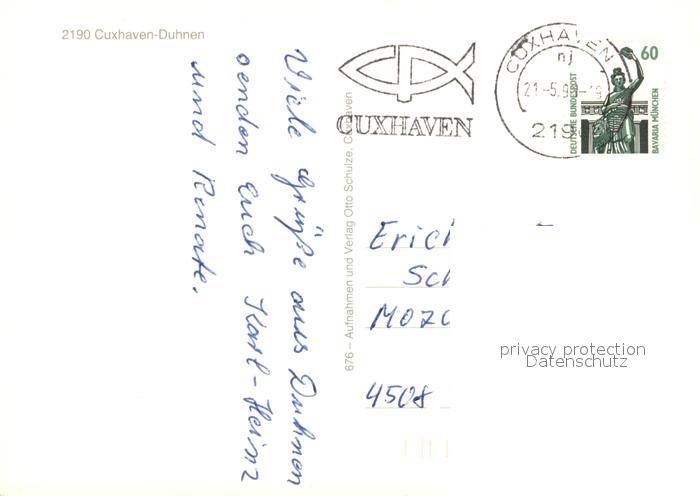 2190 Cuxhaven-Duhnen
Viele Grüße aus Duhnen
senden Euch Karl-Heinz
und Renate.
676 – Aufnahmen und Verlag Otto Schulze, Cuxhaven
CUXHAVEN
CUXHAVEN
nj
21.-5.9
219
60
DEUTSCHE BUNDESPOST
BAVARIA MÜNCHEN
Erich
Sch
MOZ
4508
privacy protection
Datenschutz